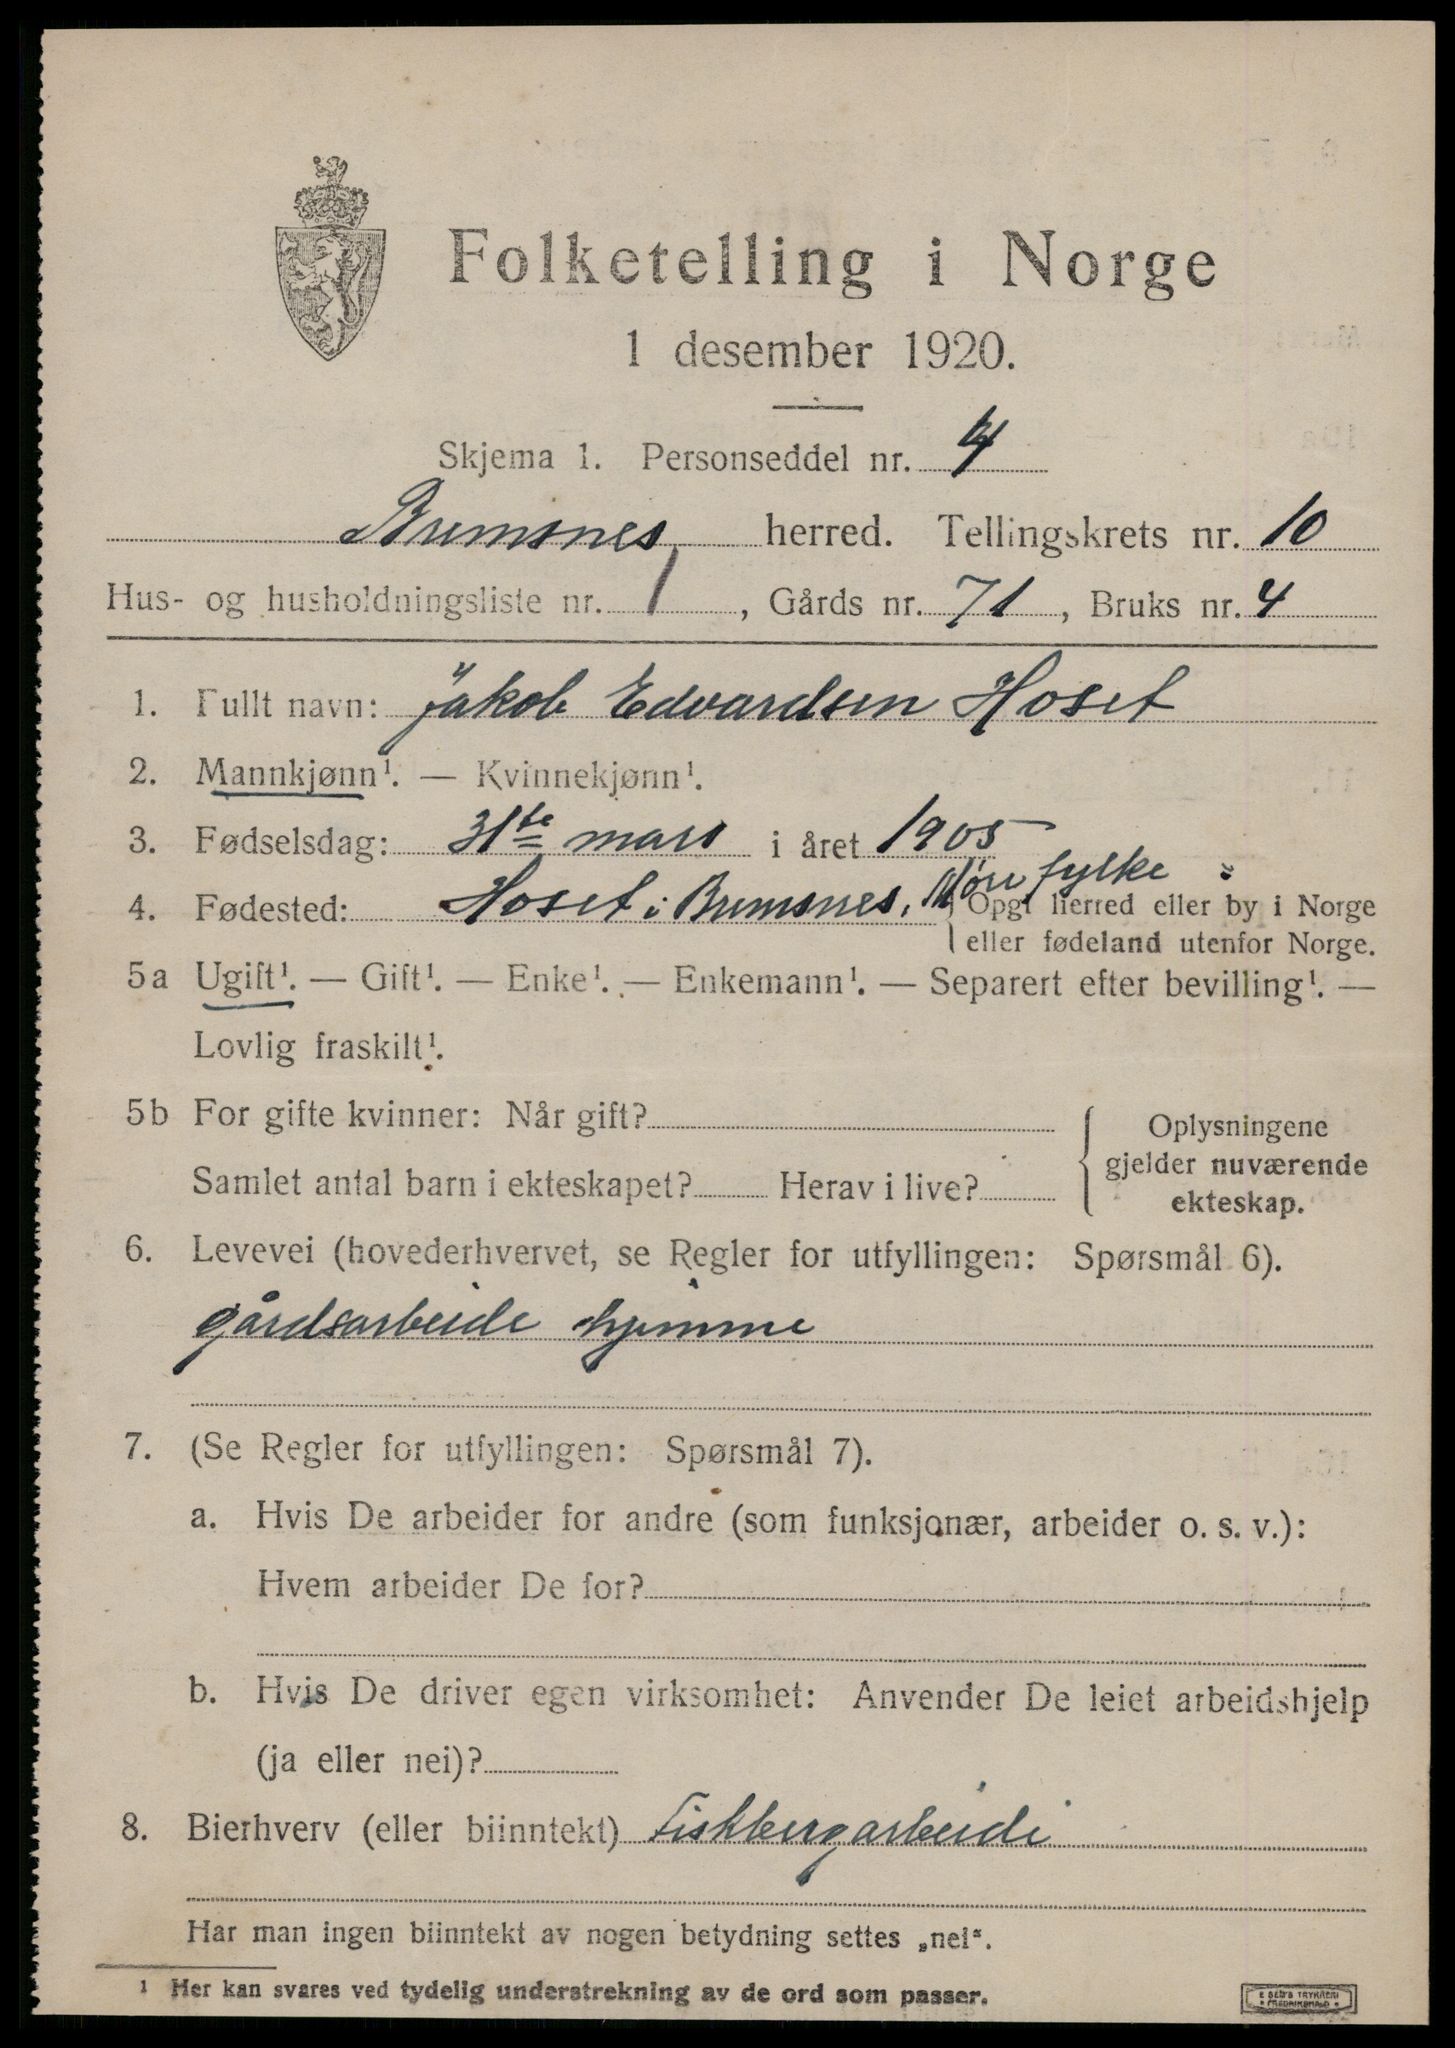 Folketelling i Norge
1 desember 1920.
Skjema 1. Personseddel nr. 4
Bremsnes herred. Tellingskrets nr. 10
Hus- og husholdningsliste nr. 1, Gårds nr. 71, Bruks nr. 4
1. Fullt navn: Jakob Edvardsen Hoset
2. Mannkjønn¹. — Kvinnekjønn¹.
3. Fødselsdag: 31te mars i året 1905
4. Fødested: Hoset i Bremsnes, Møre fylke { Opgi herred eller by i Norge
eller fødeland utenfor Norge.
5a Ugift¹. — Gift¹. — Enke¹. — Enkemann¹. — Separert efter bevilling¹. —
Lovlig fraskilt¹.
5b For gifte kvinner: Når gift? { Oplysningene
Samlet antal barn i ekteskapet? Herav i live? gjelder nuværende
ekteskap.
6. Levevei (hovederhvervet, se Regler for utfyllingen: Spørsmål 6).
gårdsarbeide hjemme
7. (Se Regler for utfyllingen: Spørsmål 7).
a. Hvis De arbeider for andre (som funksjonær, arbeider o. s. v.):
Hvem arbeider De for?
b. Hvis De driver egen virksomhet: Anvender De leiet arbeidshjelp
(ja eller nei)?
8. Bierhverv (eller biinntekt) Fiskbergarbeide
Har man ingen biinntekt av nogen betydning settes „nei“.
¹ Her kan svares ved tydelig understrekning av de ord som passer.
E SEM'S TRYKKERI
• FREDRIKSHALD •